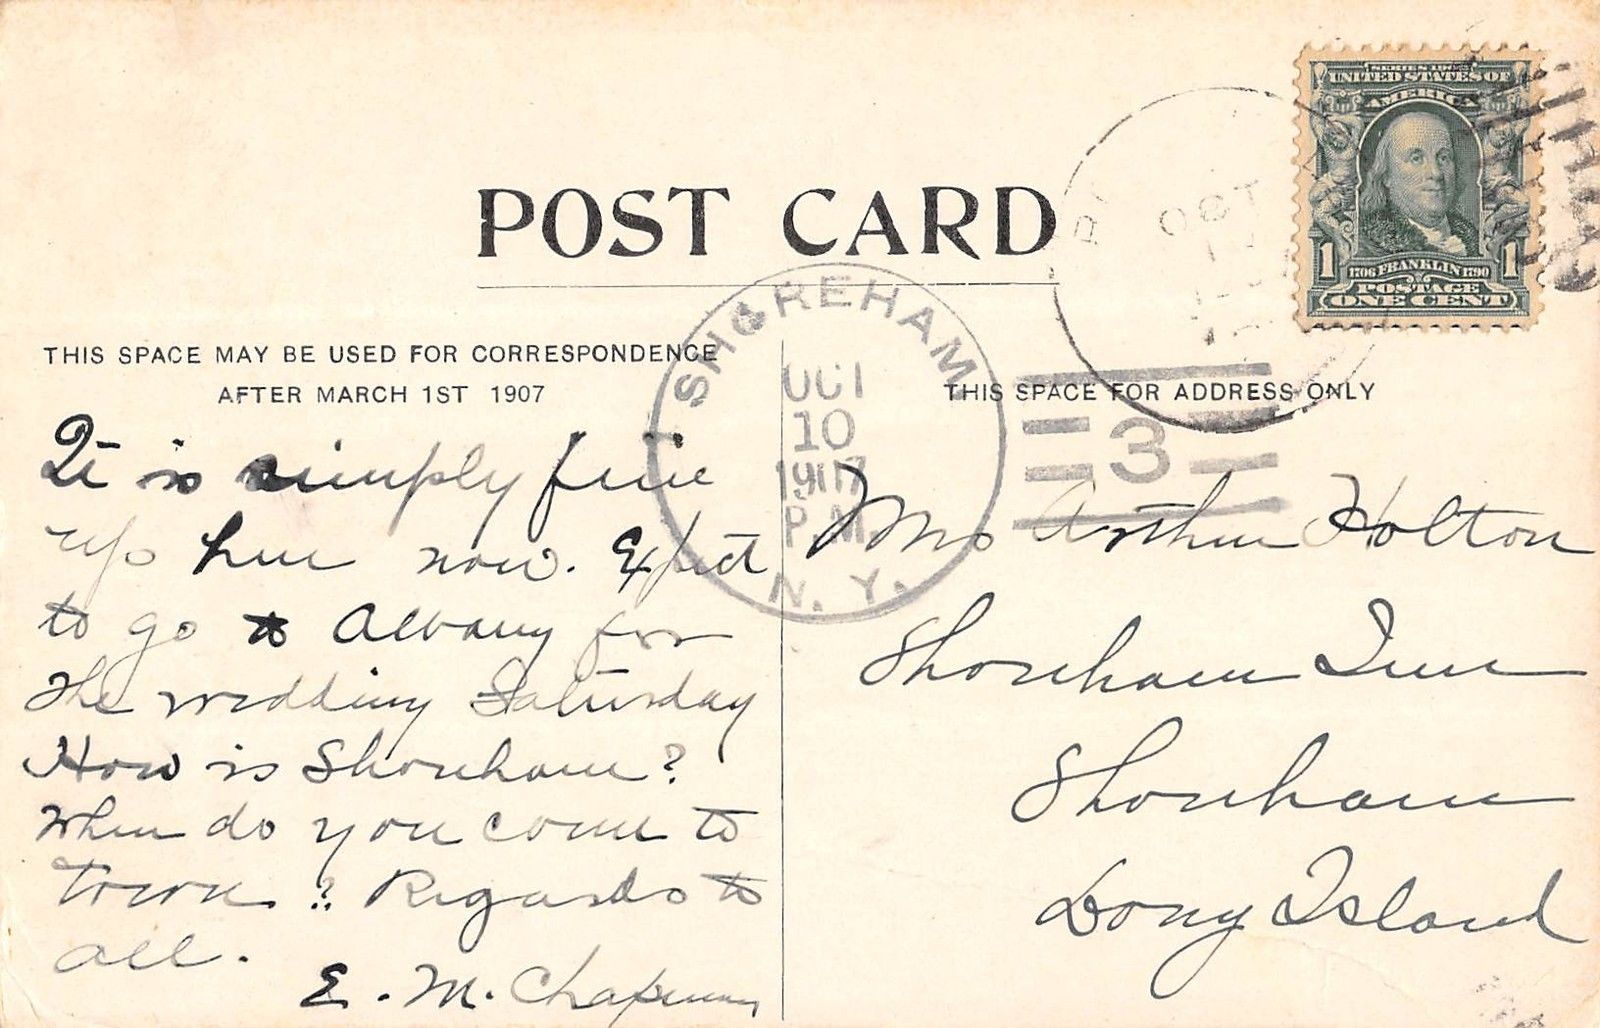 POST CARD
SERIES 1902
UNITED STATES OF
AMERICA
1
1706 FRANKLIN 1790
1
POSTAGE
ONE CENT
OCT
THIS SPACE MAY BE USED FOR CORRESPONDENCE
AFTER MARCH 1ST 1907
SHOREHAM
OCT
10
1907
P.M.
N. Y.
3
THIS SPACE FOR ADDRESS ONLY
It is simply fine
up here now. Expect
to go to Albany for
the wedding Saturday
How is Shoreham?
When do you come to
town? Regards to
all.
E. M. Chapman
Mrs Arthur Holton
Shoreham Inn
Shoreham
Long Island